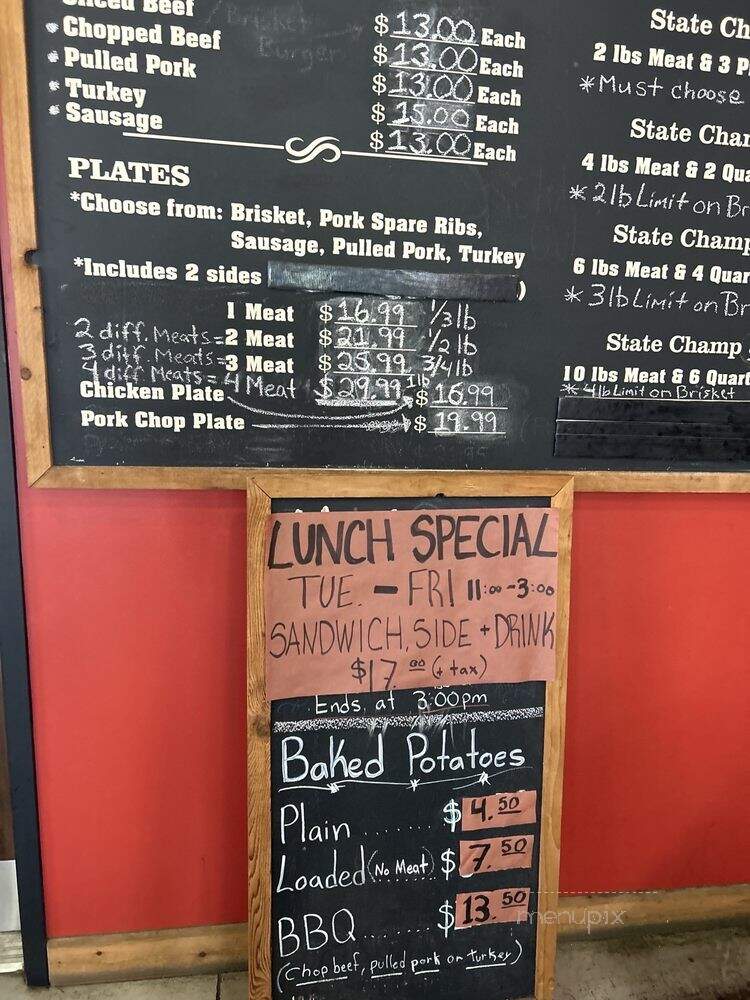 Sliced Beef $13.00 Each
Chopped Beef $13.00 Each
Pulled Pork $13.00 Each
Turkey $15.00 Each
Sausage $13.00 Each
Brisket
Burger
PLATES
*Choose from: Brisket, Pork Spare Ribs,
Sausage, Pulled Pork, Turkey
*Includes 2 sides )
1 Meat $16.99 1/3 lb
2 diff. Meats = 2 Meat $21.99 1/2 lb
3 diff. Meats = 3 Meat $25.99 3/4 lb
4 diff Meats = 4 Meat $29.99 1lb
Chicken Plate $16.99
Pork Chop Plate $19.99
State Ch
2 lbs Meat & 3 P
*Must choose
State Cha
4 lbs Meat & 2 Qua
* 2lb Limit on Br
State Champ
6 lbs Meat & 4 Quar
* 3lb Limit on Br
State Champ
10 lbs Meat & 6 Quart
* 4lb Limit on Brisket
LUNCH SPECIAL
TUE. - FRI 11:00-3:00
SANDWICH, SIDE + DRINK
$17.00 (+ tax)
Ends at 3:00pm
Baked Potatoes
Plain ...... $4.50
Loaded (No Meat) $7.50
BBQ ........ $13.50
(Chop beef, pulled pork or turkey)
menupix